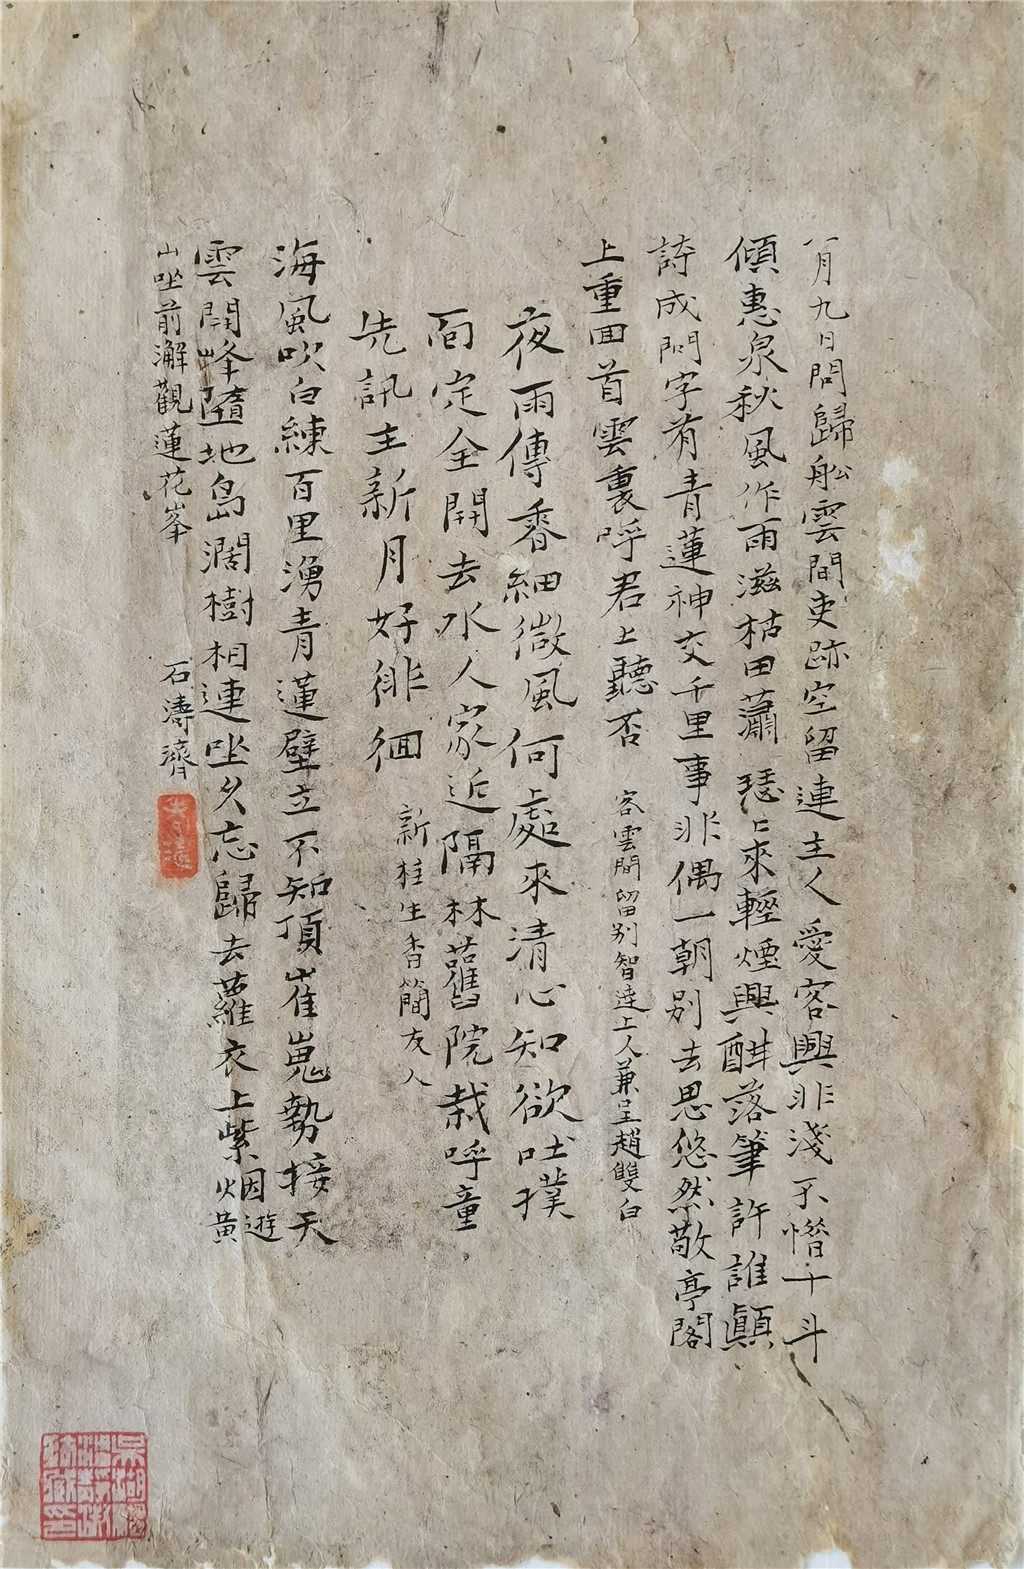 八月九日問歸船雲間吏跡空留連主人愛客興非淺不惜十斗
傾惠泉秋風作雨滋枯田蕭瑟瑟來輕煙興酣落筆許誰顛
詩成問字肴青蓮神交千里事非偶一朝別去思悠然敬亭閣
上重回首雲裏呼君君聽否
客雲間留別智達上人兼呈趙雙白
夜雨傳香細微風何處來清心知欲吐撲
面定全開去水人家近隔林舊院栽呼童
先訊主新月好徘徊
新桂生香簡友人
海風吹白練百里湧青蓮壁立不知頂崔嵬勢接天
雲開峰墮地島濶樹相連坐久忘歸去蘿衣上紫烟遊黃
山坐前澥觀蓮花峯
石濤濟